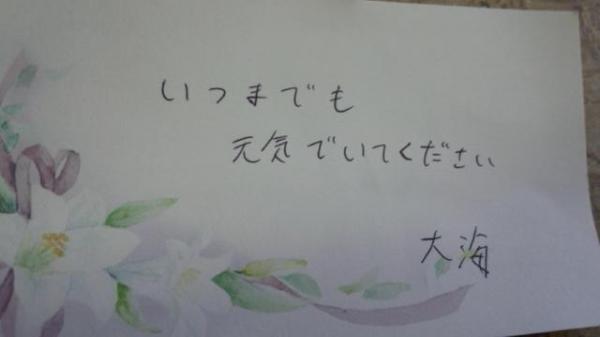 いつまでも
元気でいてください
大海